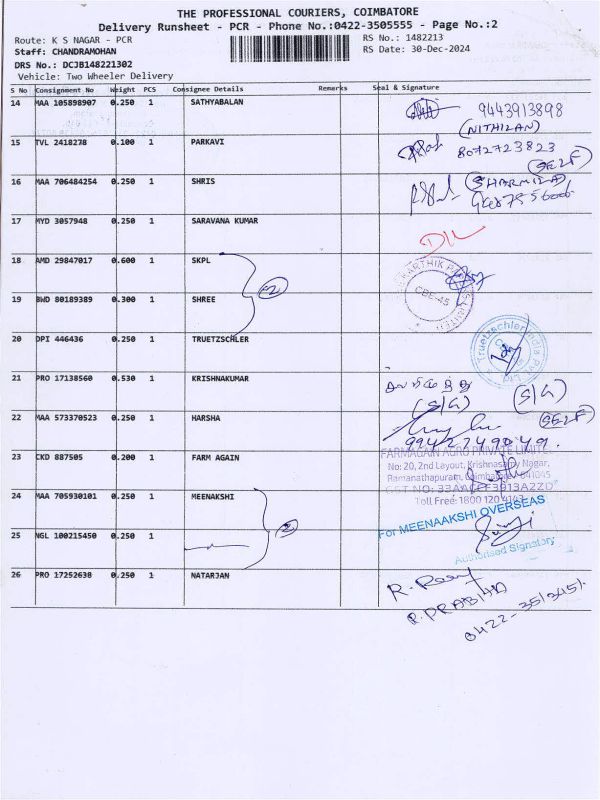 THE PROFESSIONAL COURIERS, COIMBATORE
Delivery Runsheet - PCR - Phone No.:0422-3505555 - Page No.:2
Route: K S NAGAR - PCR
RS No.: 1482213
Staff: CHANDRAMOHAN
RS Date: 30-Dec-2024
DRS No.: DCJB148221302
Vehicle: Two Wheeler Delivery
S No Consignment No Weight PCS Consignee Details Remarks Seal & Signature
14 MAA 105898907 0.250 1 SATHYABALAN
9443913898
(NITHILAN)
15 TVL 2418278 0.100 1 PARKAVI
8072723823
(SELF)
16 MAA 706484254 0.250 1 SHRIS
(SHARMILA)
17 MYD 3057948 0.250 1 SARAVANA KUMAR
18 AMD 29847017 0.600 1 SKPL
2
CBE-45
19 BWD 80189389 0.300 1 SHREE
20 DPI 446436 0.250 1 TRUETZSCHLER
Truetzschler India Pvt. Ltd
21 PRO 17138560 0.530 1 KRISHNAKUMAR
(S/G)
(S/G)
22 MAA 573370523 0.250 1 HARSHA
(SELF)
9942749049
23 CKD 887505 0.200 1 FARM AGAIN
FARMAGAIN AGRO PRIVATE LIMITED
No: 20, 2nd Layout, Krishnasamy Nagar,
Ramanathapuram, Coimbatore - 641045
Toll Free: 1800 120 4143
24 MAA 705930101 0.250 1 MEENAKSHI
2
For MEENAAKSHI OVERSEAS
25 NGL 100215450 0.250 1
Authorised Signatory
26 PRO 17252638 0.250 1 NATARJAN
R. PRABHA